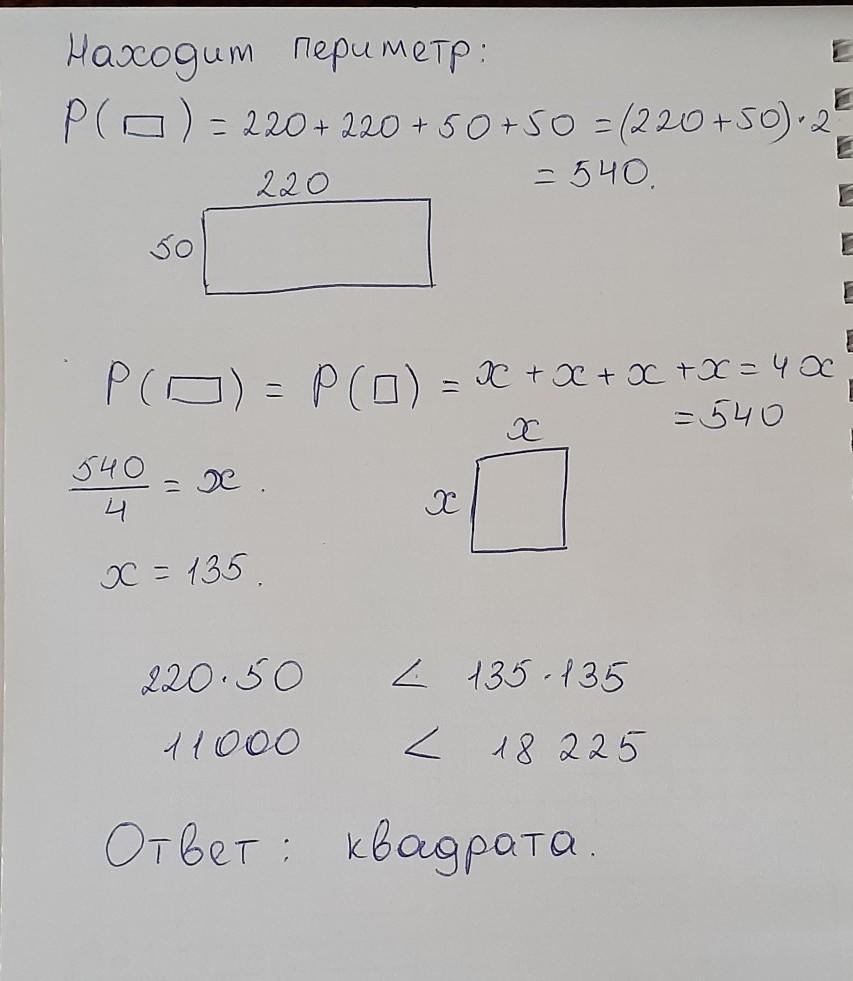 Находит периметр:
P(▭) = 220 + 220 + 50 + 50 = (220 + 50) · 2
= 540.
220
50
P(▭) = P(□) = x + x + x + x = 4x
= 540
x
540/4 = x.
x
x = 135.
220 · 50 < 135 · 135
11000 < 18 225
Ответ: квадрата.